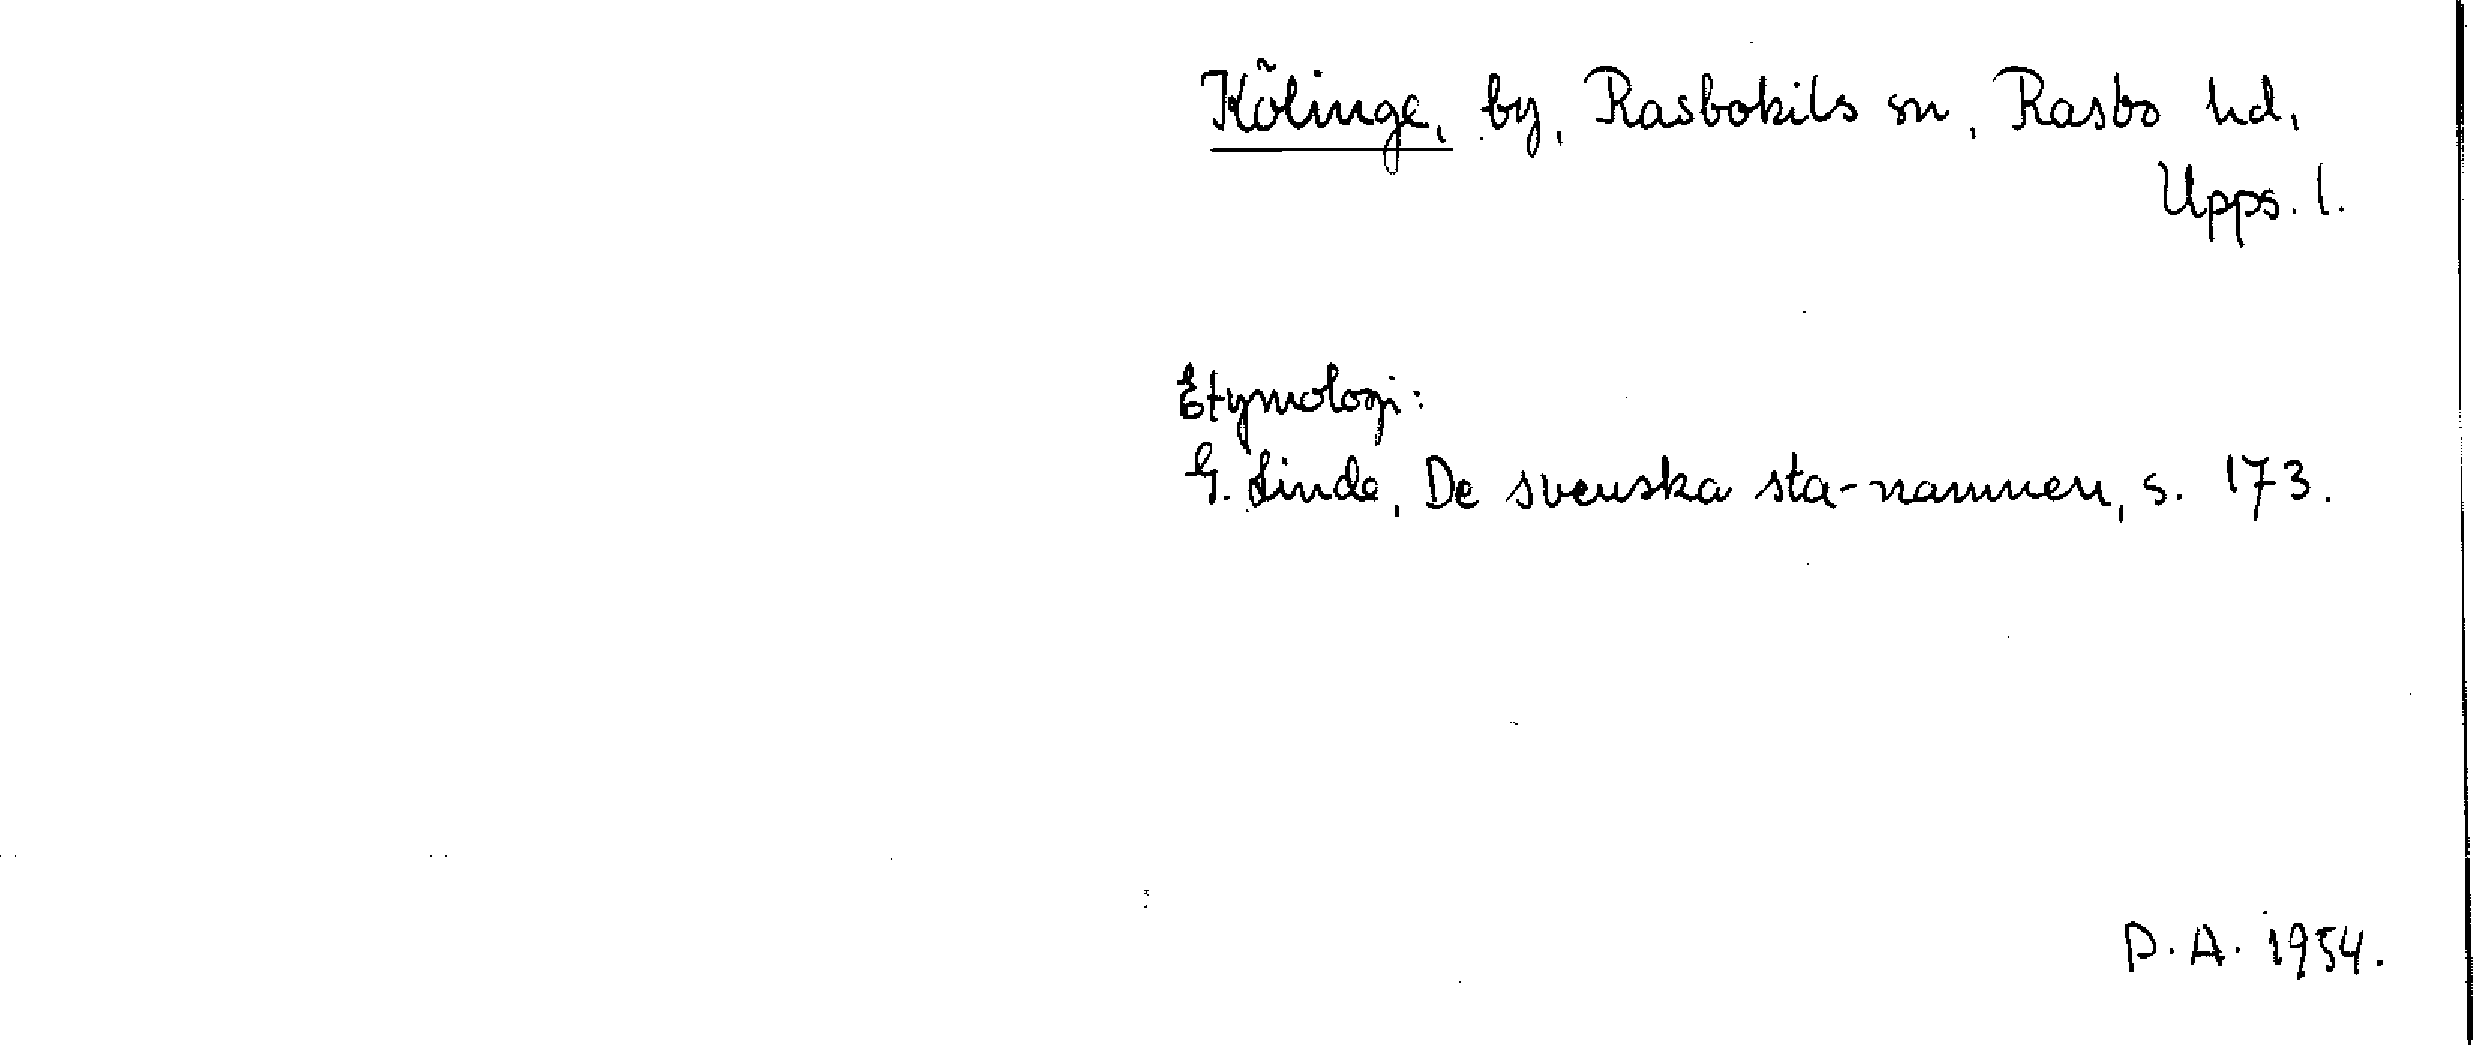 Kölinge, by, Rasbokils sn, Rasbo hd,
Upps. l.
Etymologi:
G. Linde, De svenska sta-namnen, s. 173.
D. A. 1954.